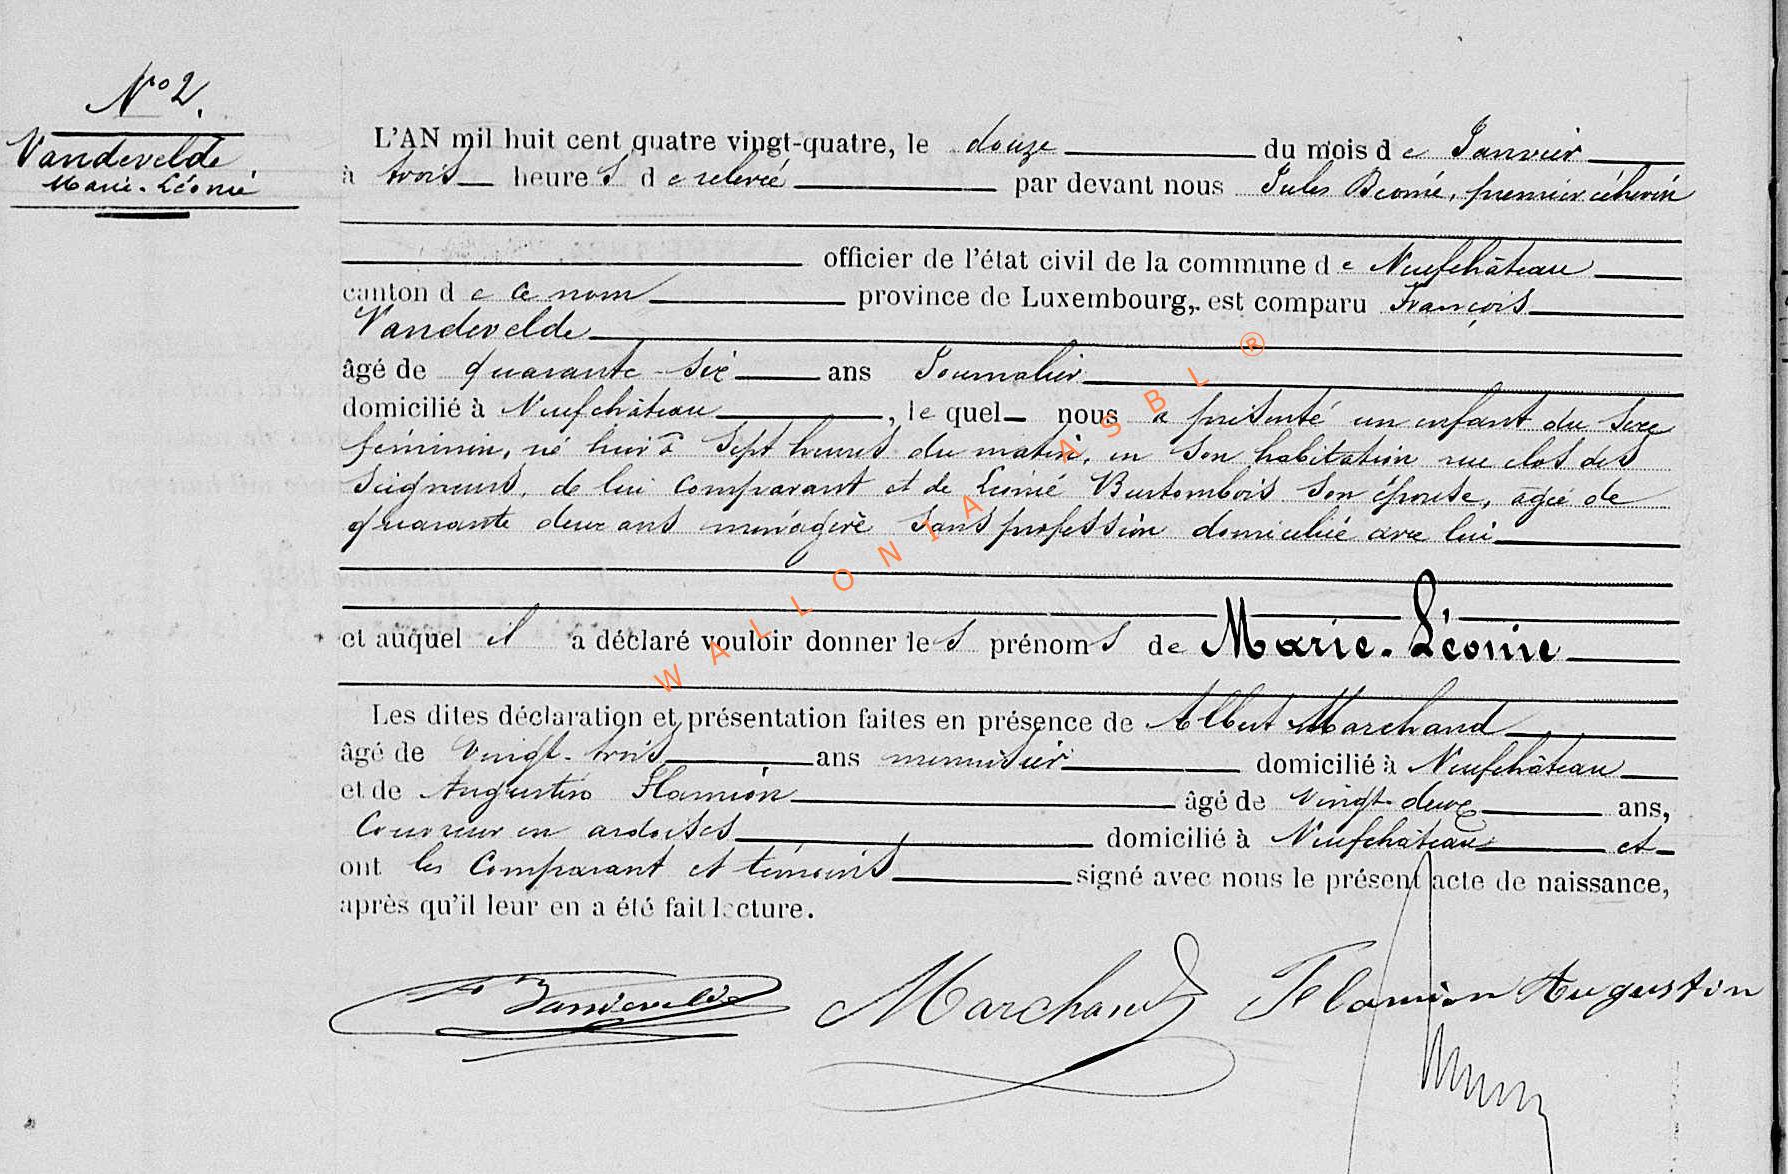 N° 2.
Vandevelde
Marie-Léonie
L'AN mil huit cent quatre vingt-quatre, le douze du mois de Janvier
à trois heures de relevée par devant nous Jules premier échevin
officier de l'état civil de la commune de Neufchâteau
canton de ce nom province de Luxembourg, est comparu François
Vandevelde
âgé de quarante-six ans Journalier
domicilié à Neufchâteau, lequel nous a présenté un enfant du sexe
féminin, né hier à sept heures du matin, en son habitation rue clos des
Seigneurs, de lui comparant et de Léonie Burtombois son épouse, agée de
quarante deux ans ménagère sans profession domiciliée avec lui
et auquel il a déclaré vouloir donner les prénoms de Marie-Léonie
Les dites déclaration et présentation faites en présence de Albert Marchand
âgé de vingt-trois ans menuisier domicilié à Neufchâteau
et de Augustin Flamion âgé de vingt-deux ans,
Couvreur en ardoises domicilié à Neufchâteau et
ont les Comparant et témoins signé avec nous le présent acte de naissance,
après qu'il leur en a été fait lecture.
Vandevelde Marchand Flamion Augustin
WALLONIA ASBL ®